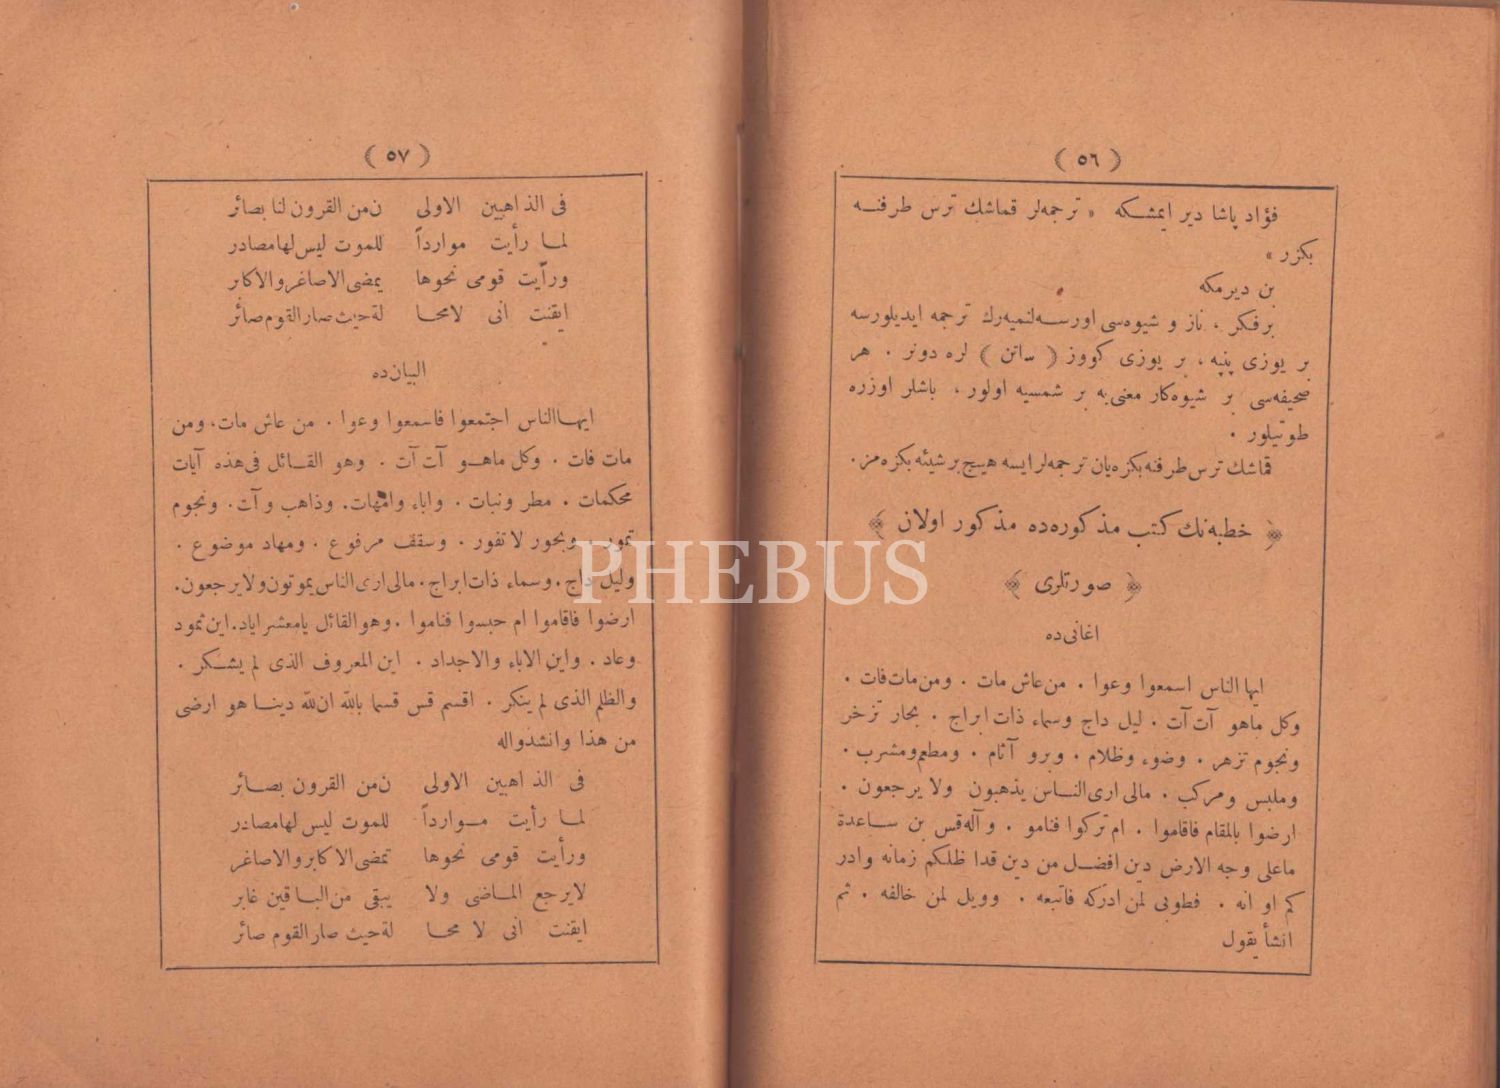 ﴿ ٥٦ ﴾
فؤاد پاشا دير ايمشكه « ترجمه‌لر قماشك ترس طرفنه
بكزر »
بن ديرمكه
برفكر ، ناز و شيوه‌سى اورسه‌لنميه‌رك ترجمه ايديلورسه
بر يوزى پنپه ، بر يوزى كووز ( ساتن ) لره دونر . هر
صحيفه‌سى بر شيوه‌كار معنى‌به بر شمسيه اولور ، باشلر اوزره
طوتيلور .
قماشك ترس طرفنه بكزه‌يان ترجمه‌لر ايسه هيچ بر شيئه بكزه‌مز .
﴿ خطبه‌نك كتب مذكوره‌ده مذكور اولان ﴾
﴿ صورتلرى ﴾
اغانى‌ده
ايها الناس اسمعوا وعوا . من عاش مات . ومن مات فات .
وكل ماهو آت آت . ليل داج وسماء ذات ابراج . بحار تزخر
ونجوم تزهر . وضوء وظلام . وبر و آثام . ومطعم ومشرب .
وملبس ومركب . مالى ارى الناس يذهبون ولا يرجعون .
ارضوا بالمقام فاقاموا . ام تركوا فنامو . و آله قس بن ساعدة
ماعلى وجه الارض دين افضل من دين قدا ظلكم زمانه وادر
كم او انه . فطوبى لمن ادركه فاتبعه . وويل لمن خالفه . ثم
انشأ يقول
﴿ ٥٧ ﴾
فى الذاهبين الاولى ن من القرون لنا بصائر
لما رأيت موارداً للموت ليس لها مصادر
ورأيت قومى نحوها يمضى الاصاغر والاكابر
ايقنت انى لامحا لة حيث صار القوم صائر
البيان‌ده
ايها الناس اجتمعوا فاسمعوا وعوا . من عاش مات، ومن
مات فات . وكل ماهو آت آت . وهو القائل فى هذه آيات
محكمات . مطر ونبات . واباء وامهات. وذاهب و آت. ونجوم
تمور . وبحور لا تفور . وسقف مرفوع . ومهاد موضوع .
وليل داج . وسماء ذات ابراج . مالى ارى الناس يموتون ولا يرجعون.
ارضوا فاقاموا ام حبسوا فناموا . وهو القائل يا معشر اياد. اين ثمود
وعاد . واين الاباء والاجداد . اين المعروف الذى لم يشكر .
والظلم الذى لم ينكر . اقسم قس قسما بالله ان لله دينا هو ارضى
من هذا وانشدواله
فى الذاهبين الاولى ن من القرون بصائر
لما رأيت موارداً للموت ليس لها مصادر
ورأيت قومى نحوها تمضى الاكابر والاصاغر
لا يرجع الماضى ولا يبقى من الباقين غابر
ايقنت انى لا محا لة حيث صار القوم صائر
PHEBUS